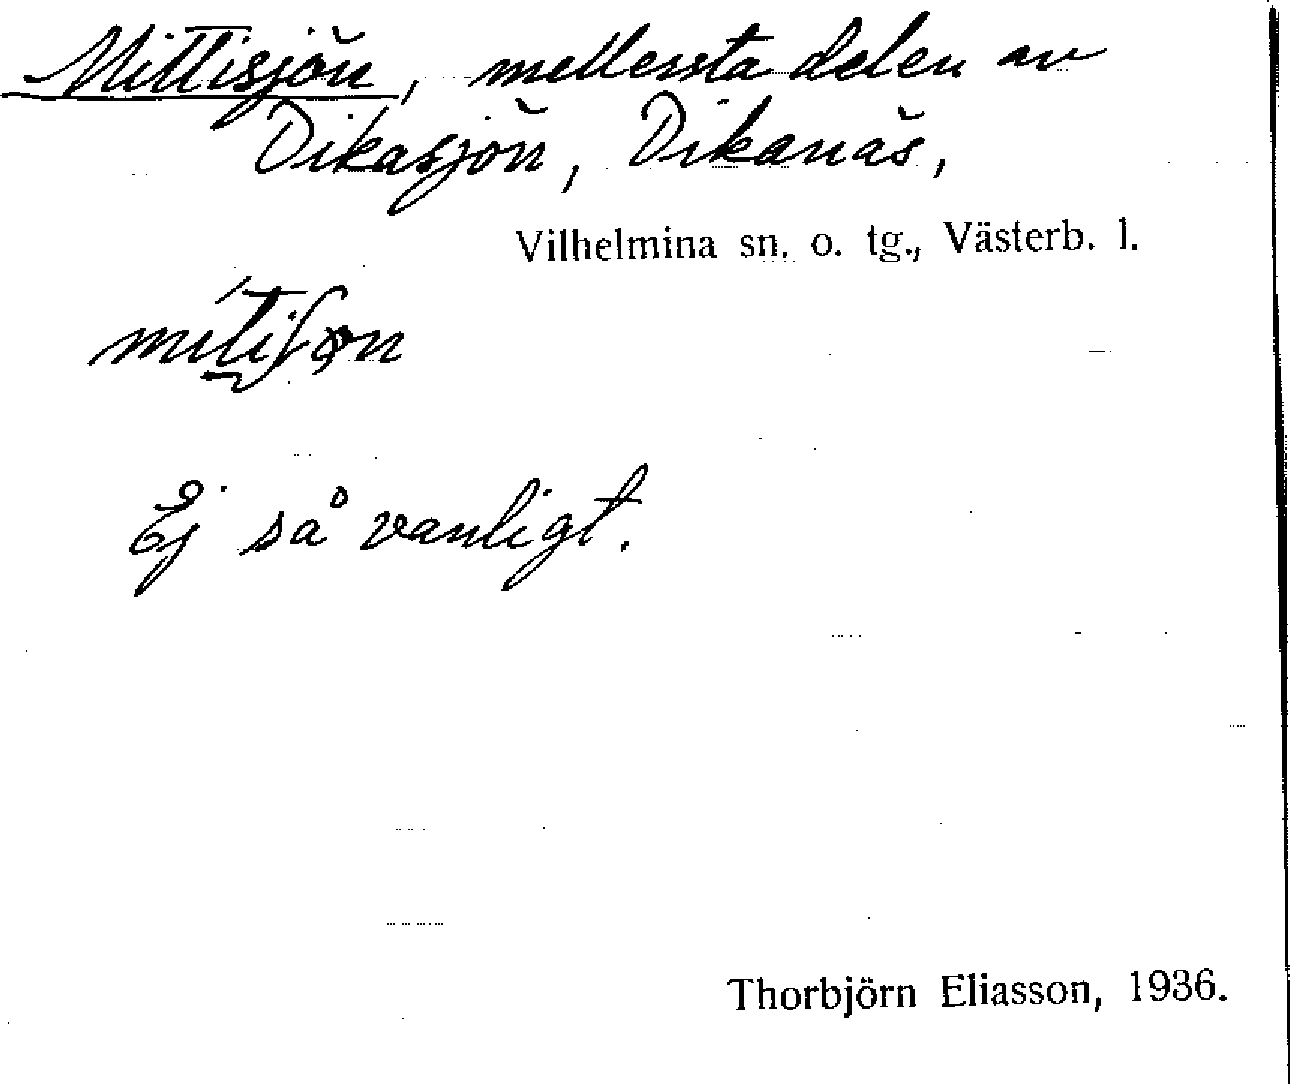 Mittisjön, mellersta delen av
Dikasjön, Dikanäs,
Vilhelmina sn. o. tg., Västerb. l.
Ej så vanligt.
Thorbjörn Eliasson, 1936.